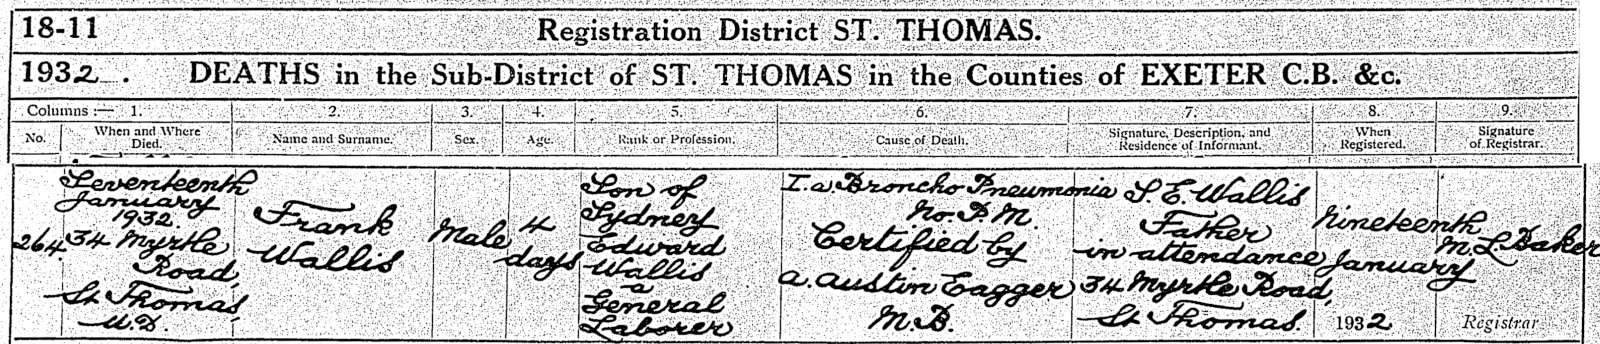 18-11
Registration District ST. THOMAS.
1932. DEATHS in the Sub-District of ST. THOMAS in the Counties of EXETER C.B. &c.
Columns :— 1. 2. 3. 4. 5. 6. 7. 8. 9.
No.
When and Where
Died.
Name and Surname.
Sex.
Age.
Rank or Profession.
Cause of Death.
Signature, Description, and
Residence of Informant.
When
Registered.
Signature
of Registrar.
264.
Seventeenth
January
1932.
34 Myrtle
Road,
St Thomas,
U.D.
Frank
Wallis
Male
4
days
Son of
Sydney
Edward
Wallis
a
General
Laborer
I. a Broncho Pneumonia
No. P.M.
Certified by
A. Austin Eagger
M.B.
S. E. Wallis
Father
in attendance
34 Myrtle Road,
St Thomas.
Nineteenth
January
1932
M. L Baker
Registrar